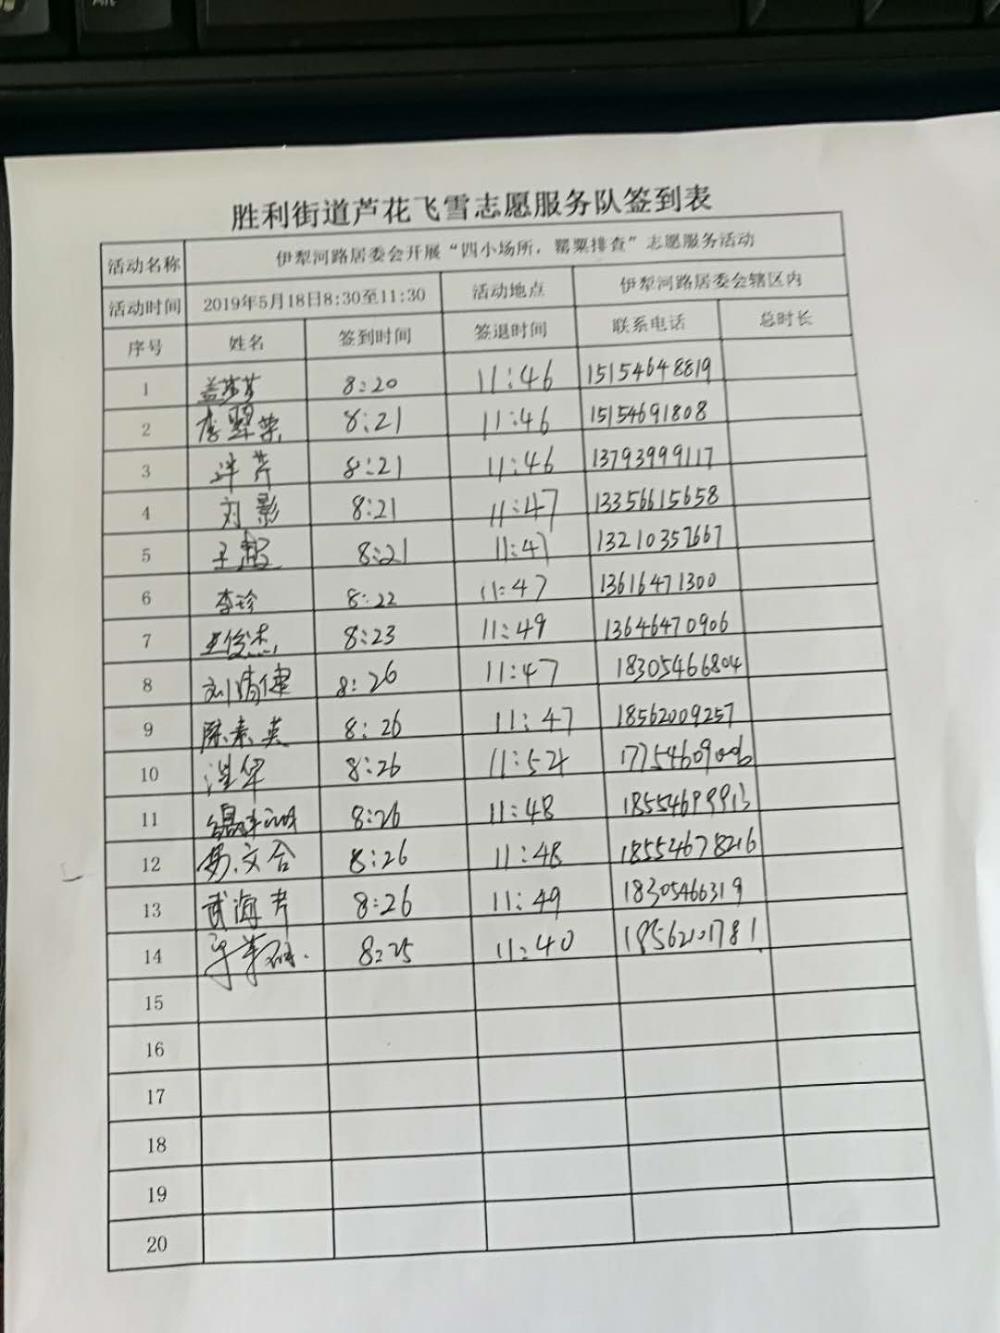 胜利街道芦花飞雪志愿服务队签到表
活动名称 伊犁河路居委会开展“四小场所，罂粟排查”志愿服务活动
活动时间 2019年5月18日8:30至11:30 活动地点 伊犁河路居委会辖区内
序号 姓名 签到时间 签退时间 联系电话 总时长
1 盖莎莎 8:20 11:46 15154648819
2 李翠荣 8:21 11:46 15154691808
3 8:21 11:46 13793999117
4 刘影 8:21 11:47 13356615658
5 王超 8:21 11:47 13210357667
6 李珍 8:22 11:47 13616471300
7 王俊杰 8:23 11:49 13646470906
8 刘清健 8:26 11:47 18305466804
9 陈素英 8:26 11:47 18562009257
10 8:26 11:52 17754609006
11 8:26 11:48 18554699913
12 8:26 11:48 18554678216
13 武海芹 8:26 11:49 18305466319
14 8:25 11:40
15
16
17
18
19
20